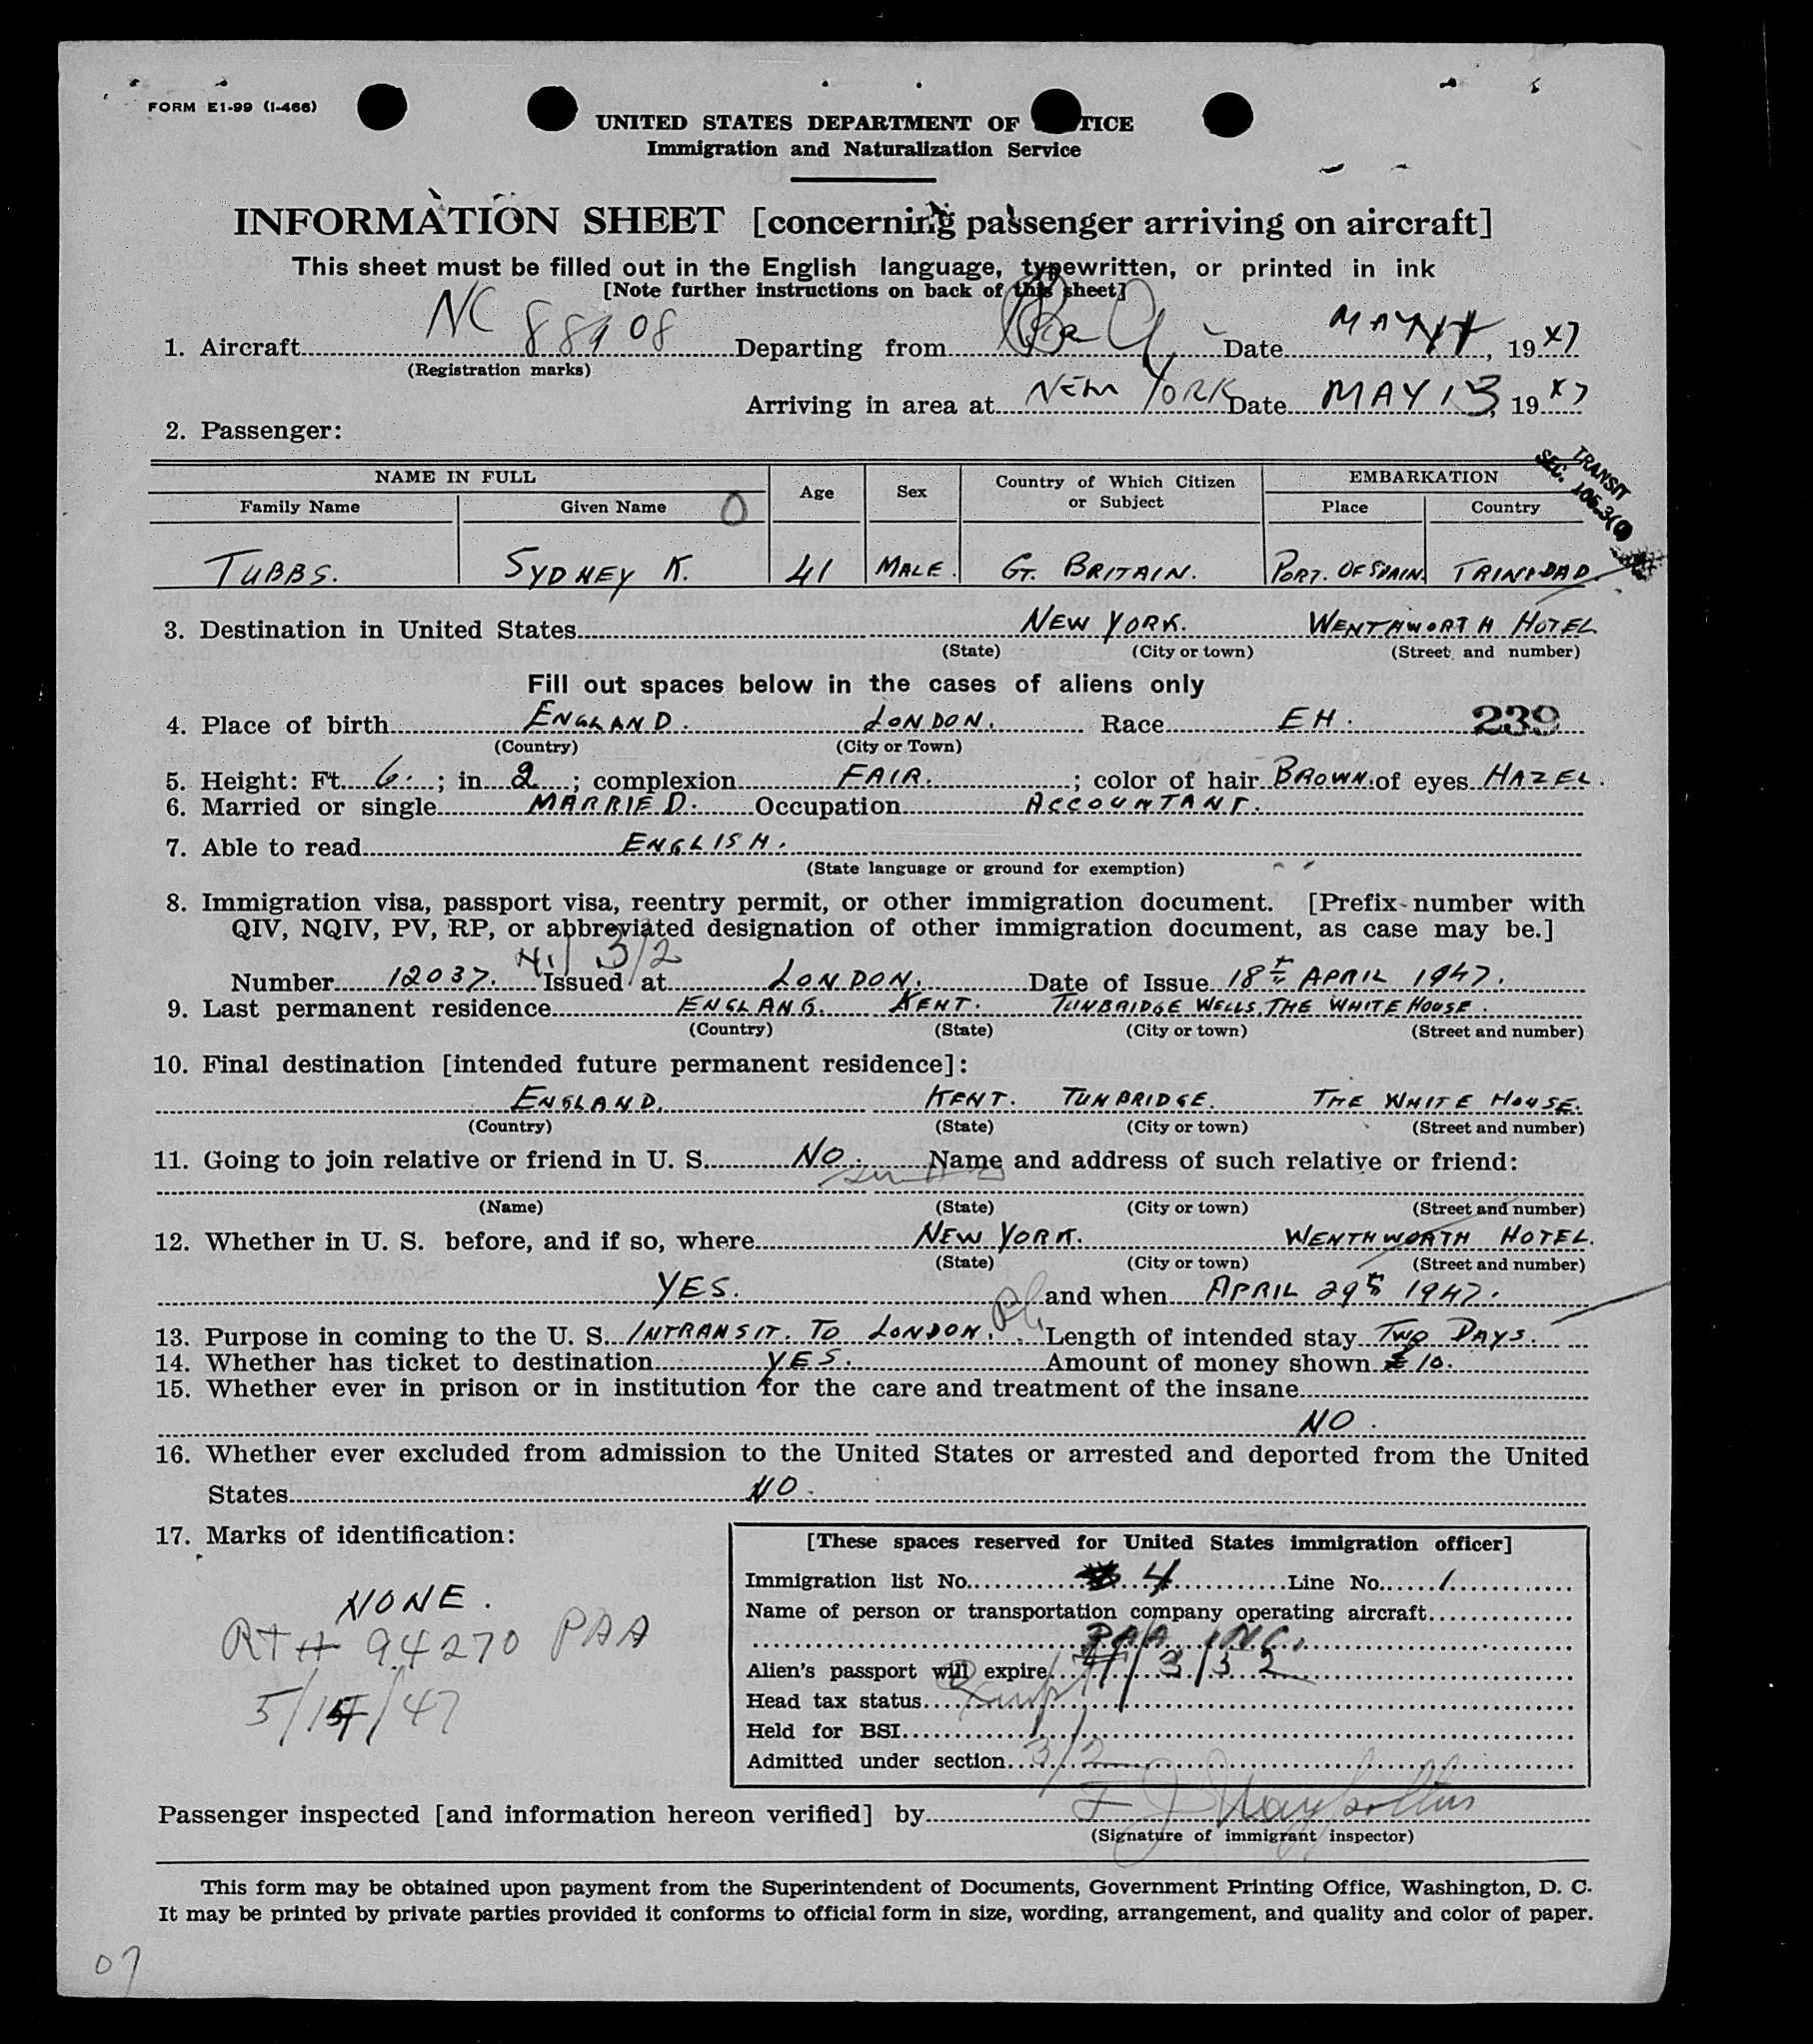 FORM E1-99 (I-466)
UNITED STATES DEPARTMENT OF TICE
Immigration and Naturalization Service
INFORMATION SHEET [concerning passenger arriving on aircraft]
This sheet must be filled out in the English language, typewritten, or printed in ink
[Note further instructions on back of this sheet]
1. Aircraft NC 88908 Departing from Date MAY 19 47
(Registration marks)
Arriving in area at NEW YORK Date MAY 13, 19 47
2. Passenger:
TRANSIT
SEC.
NAME IN FULL Age Sex Country of Which Citizen or Subject EMBARKATION
Family Name Given Name 0 Place Country
TUBBS. SYDNEY K. 41 MALE. GT. BRITAIN. PORT. OF SPAIN TRINIDAD.
3. Destination in United States NEW YORK. WENTHWORTH HOTEL
(State) (City or town) (Street and number)
Fill out spaces below in the cases of aliens only
4. Place of birth ENGLAND. LONDON. Race EH. 239
(Country) (City or Town)
5. Height: Ft. 6. ; in 2 ; complexion FAIR. ; color of hair BROWN. of eyes HAZEL.
6. Married or single MARRIED. Occupation ACCOUNTANT.
7. Able to read ENGLISH.
(State language or ground for exemption)
8. Immigration visa, passport visa, reentry permit, or other immigration document. [Prefix number with
QIV, NQIV, PV, RP, or abbreviated designation of other immigration document, as case may be.]
3/2
Number 12037. Issued at LONDON. Date of Issue 18th APRIL 1947.
9. Last permanent residence ENGLAND. KENT. TUNBRIDGE WELLS. THE WHITE HOUSE.
(Country) (State) (City or town) (Street and number)
10. Final destination [intended future permanent residence]:
ENGLAND. KENT. TUNBRIDGE. THE WHITE HOUSE.
(Country) (State) (City or town) (Street and number)
11. Going to join relative or friend in U. S. NO. Name and address of such relative or friend:
(Name) (State) (City or town) (Street and number)
12. Whether in U. S. before, and if so, where NEW YORK. WENTHWORTH HOTEL.
(State) (City or town) (Street and number)
YES. and when APRIL 29th 1947.
13. Purpose in coming to the U. S. INTRANSIT. TO LONDON. Length of intended stay TWO DAYS.
14. Whether has ticket to destination YES. Amount of money shown £10.
15. Whether ever in prison or in institution for the care and treatment of the insane
NO.
16. Whether ever excluded from admission to the United States or arrested and deported from the United
States NO.
17. Marks of identification:
NONE.
RT# 94270 PAA
5/15/47
[These spaces reserved for United States immigration officer]
Immigration list No. 4 Line No. 1
Name of person or transportation company operating aircraft
PAA INC.
Alien's passport will expire
Head tax status
Held for BSI
Admitted under section 3/2
Passenger inspected [and information hereon verified] by
(Signature of immigrant inspector)
This form may be obtained upon payment from the Superintendent of Documents, Government Printing Office, Washington, D. C.
It may be printed by private parties provided it conforms to official form in size, wording, arrangement, and quality and color of paper.
07